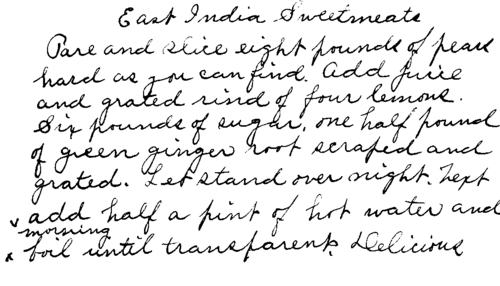 East India Sweetmeats
Pare and slice eight pounds of pears
hard as you can find. Add juice
and grated rind of four lemons.
Six pounds of sugar, one half pound
of green ginger root scraped and
grated. Let stand over night. Next
add half a pint of hot water and
morning
boil until transparent. Delicious